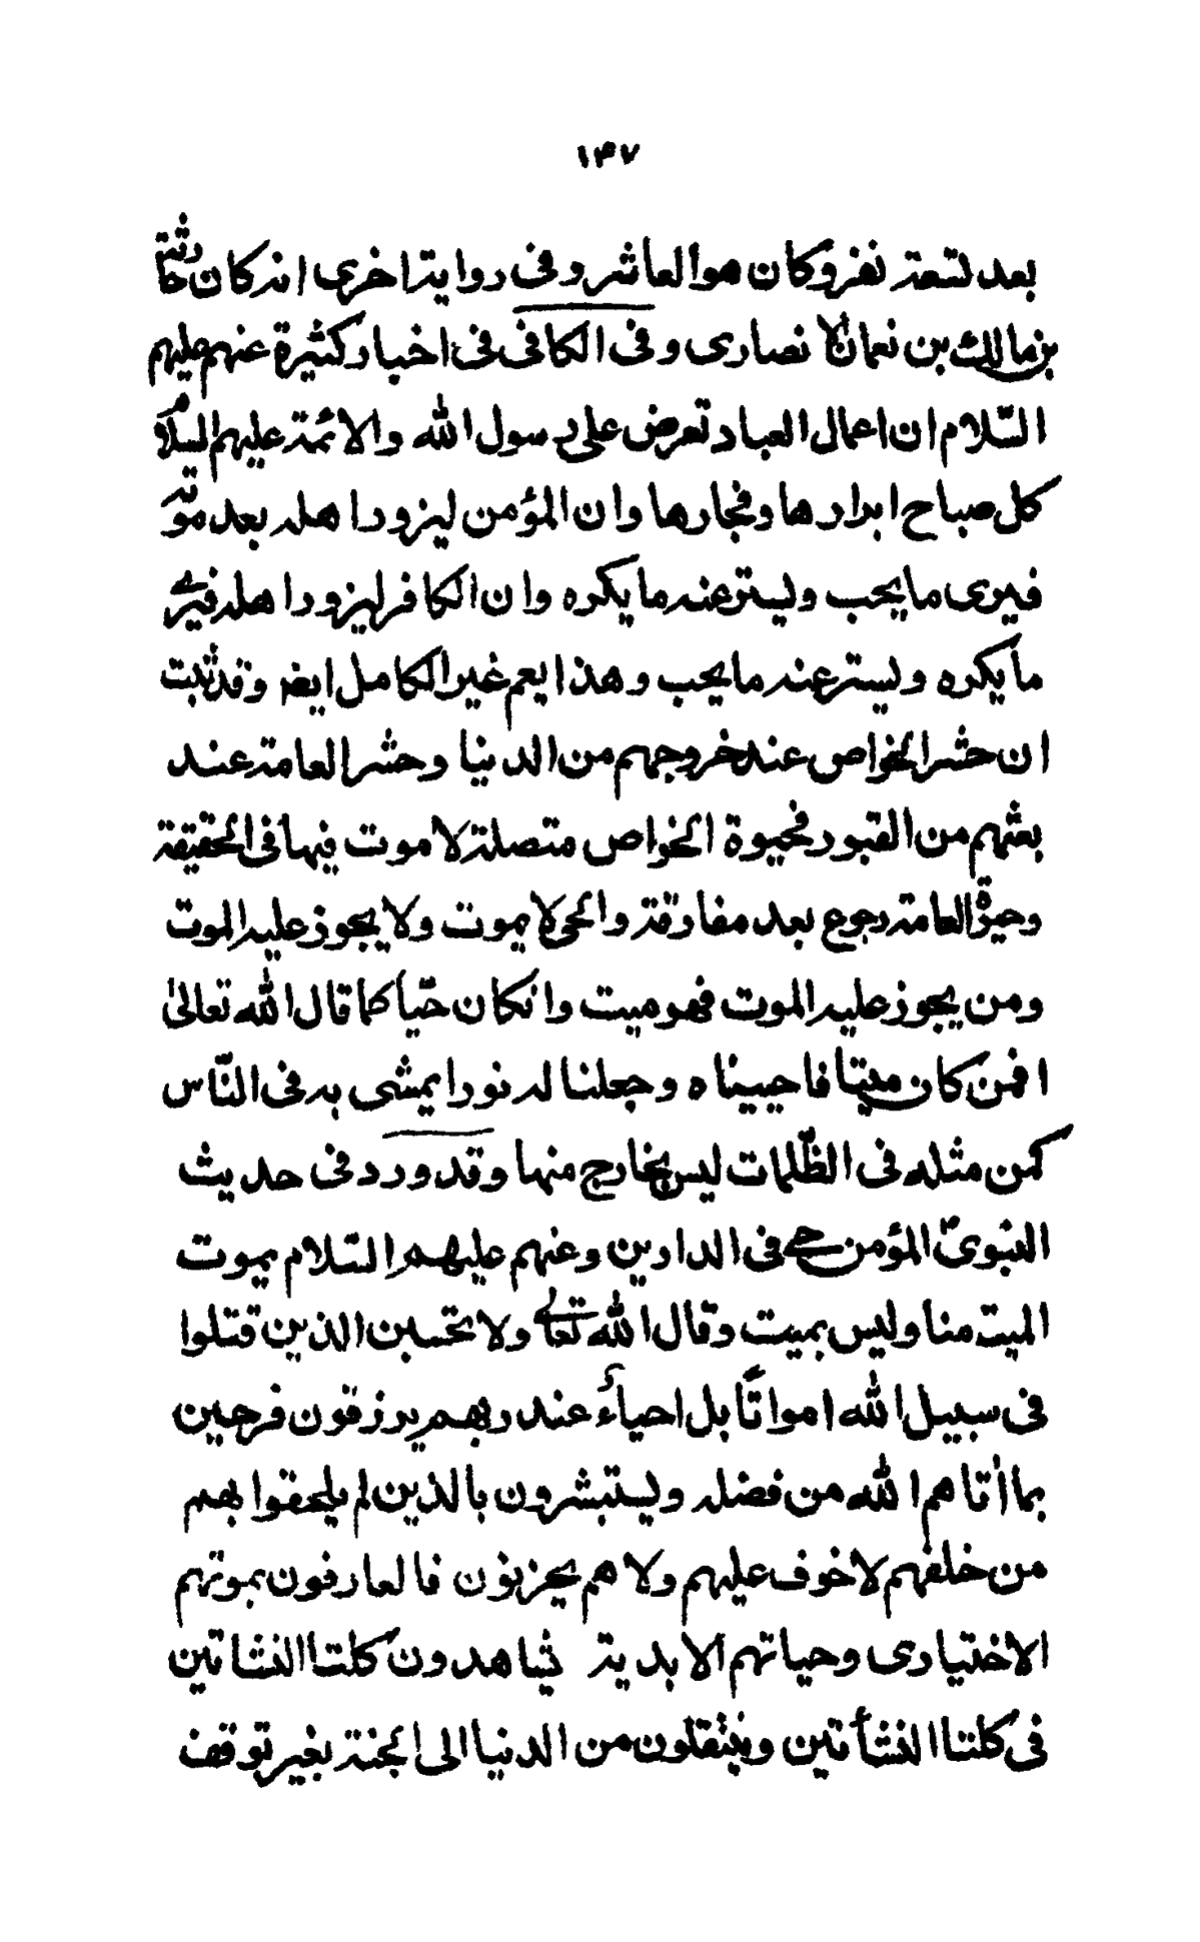 ۱۴۷
بعد تسعة نفر و كان هو العاشر و فى رواية اخرى انه كان حارثة
بن مالك بن نعمان الانصارى و فى الكافى فى اخبار كثيرة عنهم عليهم
السّلام ان اعمال العباد تعرض على رسول الله والائمة عليهم السلام
كل صباح ابرارها و فجارها وان المؤمن ليزور اهله بعد موته
فيرى ما يحب و يستر عنه ما يكره وان الكافر ليزور اهله فيرى
ما يكره و يستر عنه ما يحب و هذا يعم غير الكامل ايضا و قد ثبت
ان حشر الخواص عند خروجهم من الدنيا و حشر العامة عند
بعثهم من القبور فحيوة الخواص متصلة لا موت فيها فى الحقيقة
وحيوة العامة رجوع بعد مفارقة والحى لا يموت ولا يجوز عليه الموت
ومن يجوز عليه الموت فهو ميت وانكان حيّاً كما قال الله تعالىٰ
افمن كان ميتا فاحييناه و جعلنا له نورا يمشى به فى النّاس
كمن مثله فى الظّلمات ليس بخارج منها و قد ورد فى حديث
النبوىّ المؤمن حى فى الدارين و عنهم عليهم السّلام يموت
الميت منا وليس بميت و قال الله تعالى ولا تحسبن الذين قتلوا
فى سبيل الله امواتًا بل احياءٌ عند ربهم يرزقون فرحين
بما اٰتاهم الله من فضله و يستبشرون بالذين لم يلحقوا بهم
من خلفهم لا خوف عليهم ولا هم يحزنون فالعارفون بموتهم
الاختيارى و حياتهم الابدية يشاهدون كلتا النشاتين
فى كلتا النشأتين و ينتقلون من الدنيا الى الجنة بغير توقف